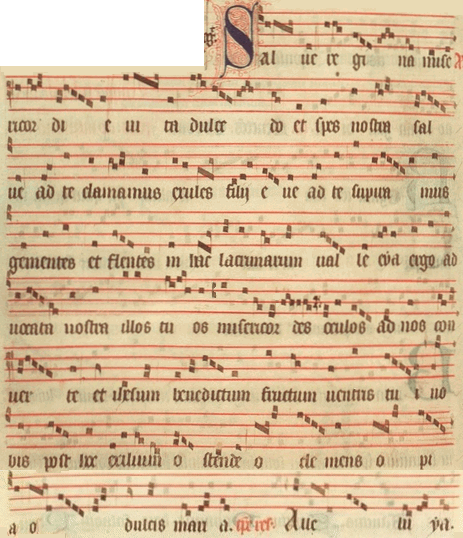 Sal ue re gi na mise
ricor di e ui ta dulce do et spes nostra sal
ue ad te clamamus exules filij e ue ad te suspira mus
gementes et flentes in hac lacrimarum ual le eya ergo ad
uocata nostra illos tu os misericor des oculos ad nos con
uer te et ihesum benedictum fructum uentris tu i no
bis post hoc exilium o stende o cle mens o pi
a o dulcis mari a. Aue m ya.